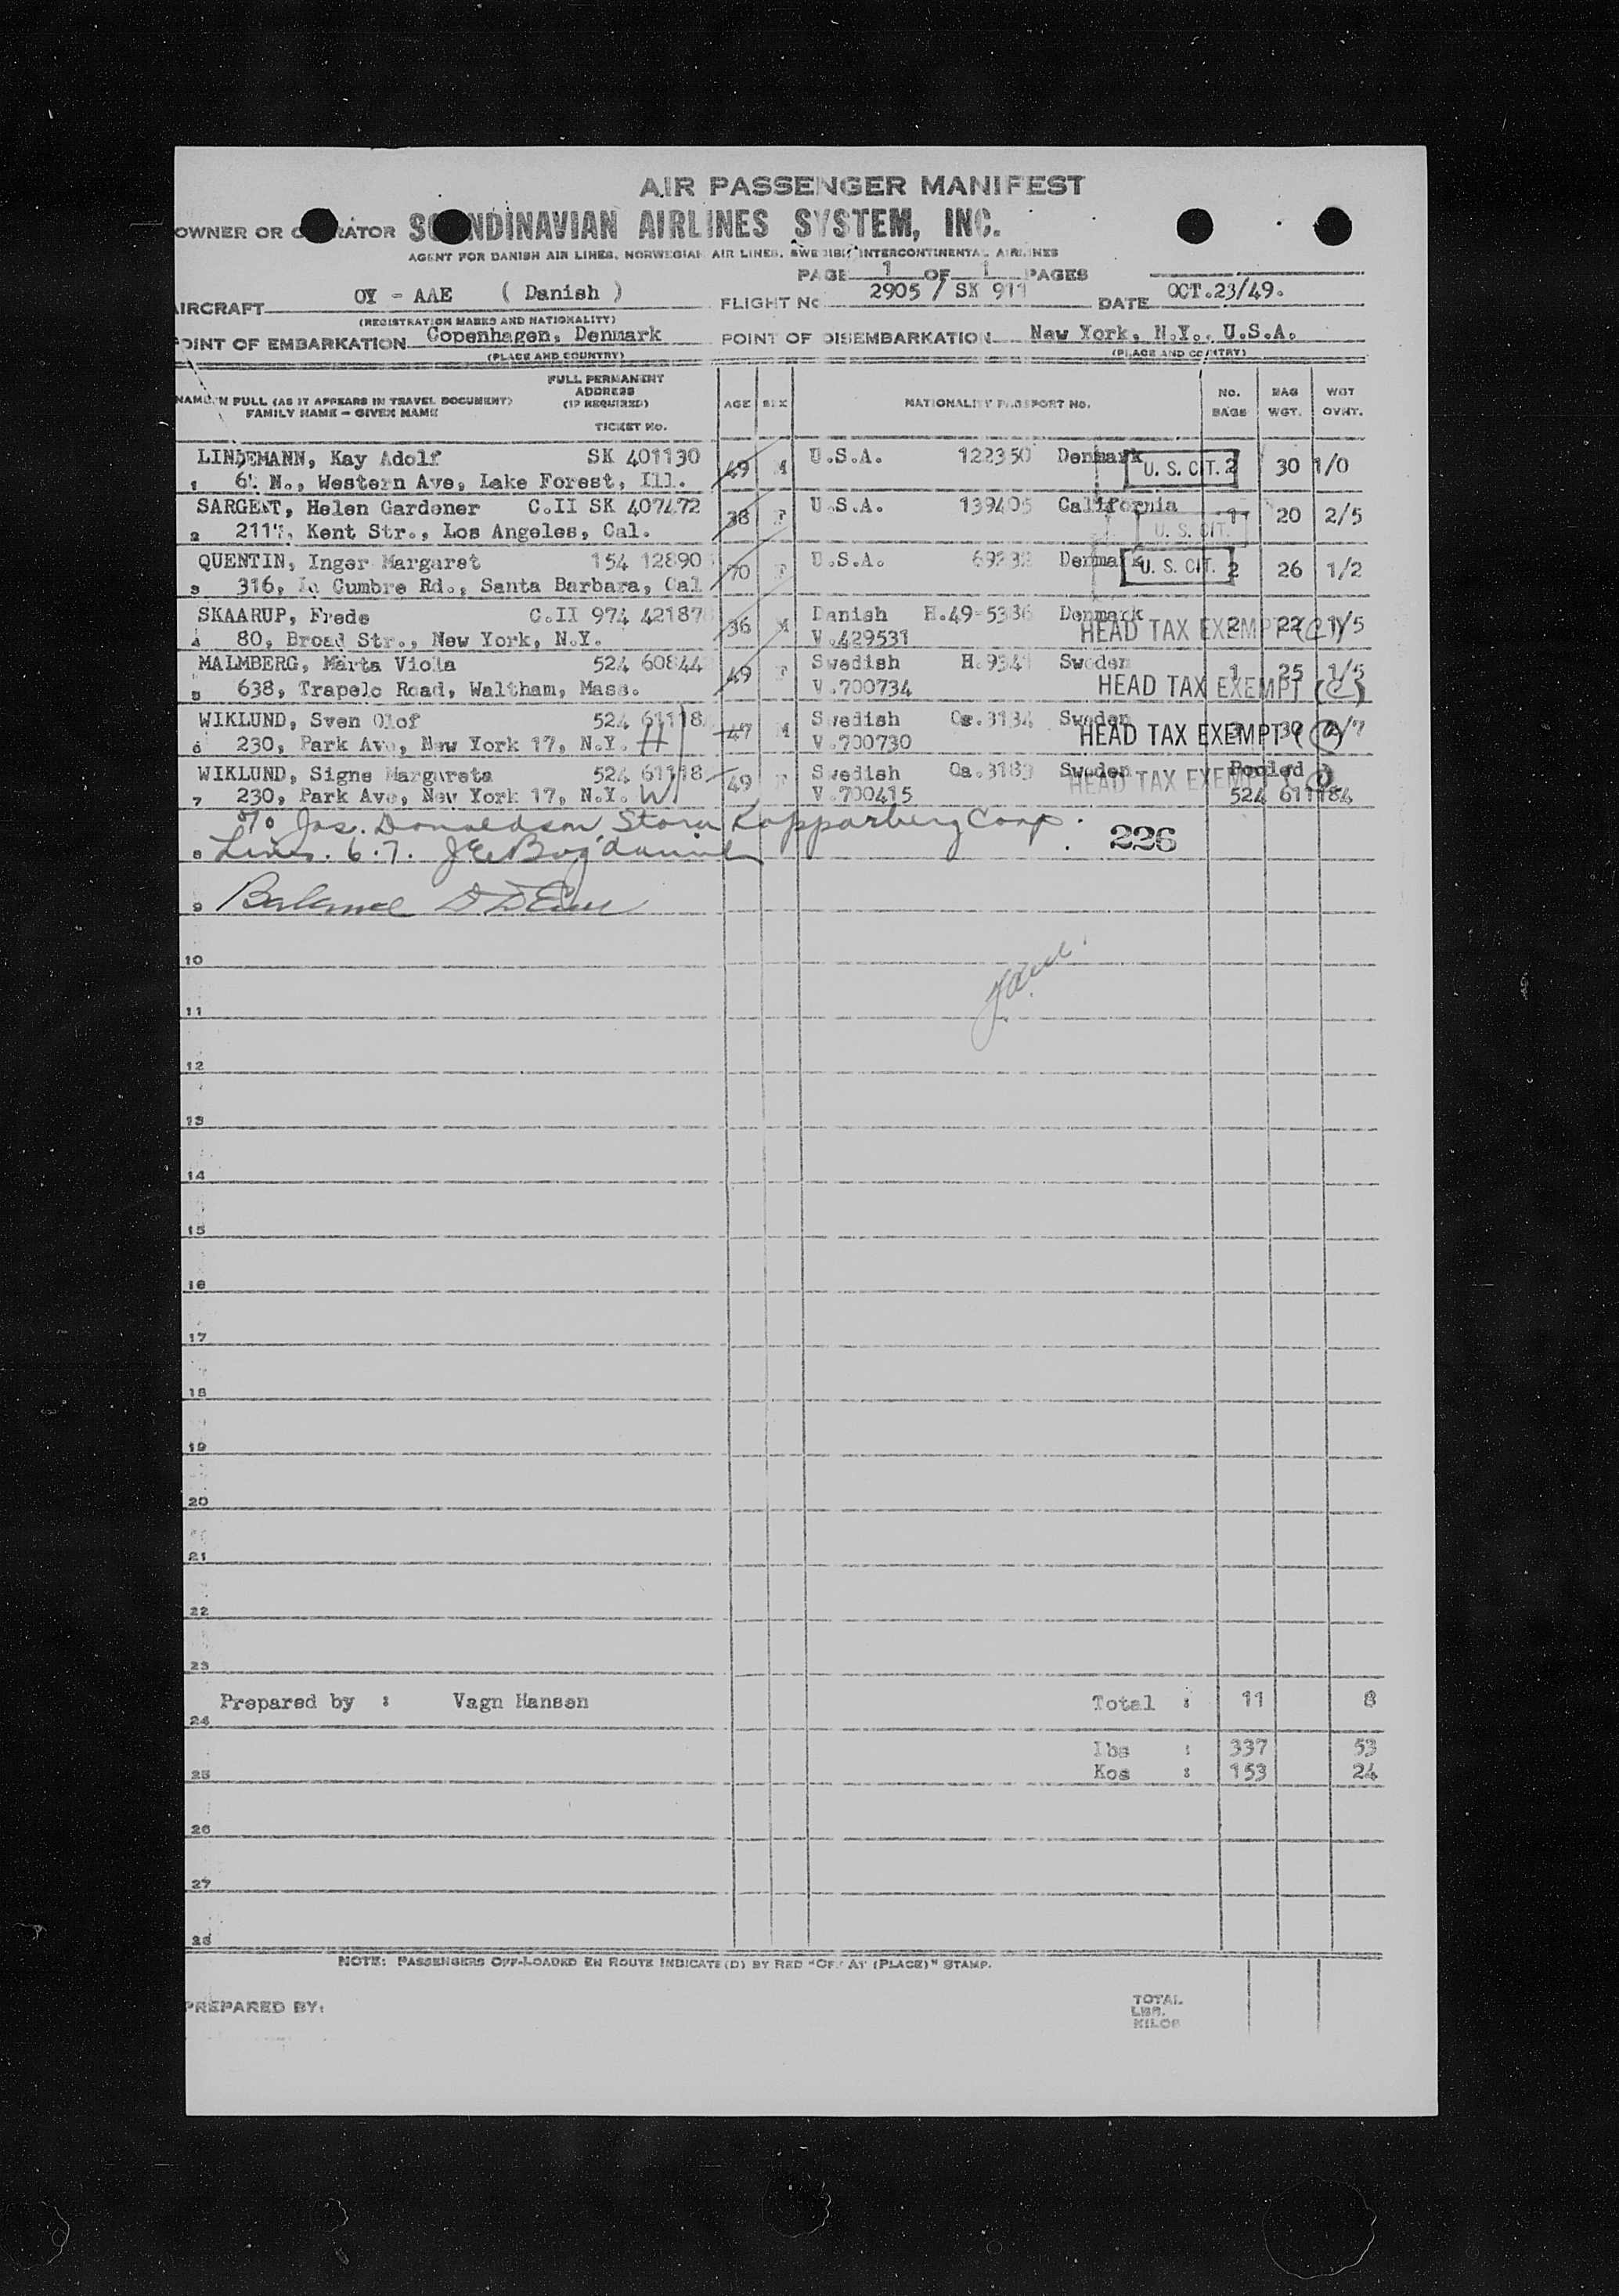 AIR PASSENGER MANIFEST
OWNER OR OPERATOR SCANDINAVIAN AIRLINES SYSTEM, INC.
AGENT FOR DANISH AIR LINES, NORWEGIAN AIR LINES, SWEDISH INTERCONTINENTAL AIRLINES
PAGE 1 OF 1 PAGES
AIRCRAFT OY - AAE ( Danish ) FLIGHT No 2905 / SK 911 DATE OCT.23/49.
(REGISTRATION MARKS AND NATIONALITY)
POINT OF EMBARKATION Copenhagen, Denmark POINT OF DISEMBARKATION New York, N.Y., U.S.A.
(PLACE AND COUNTRY) (PLACE AND COUNTRY)
NAME IN FULL (AS IT APPEARS IN TRAVEL DOCUMENT) FAMILY NAME – GIVEN NAME FULL PERMANENT ADDRESS (IF REQUIRED) TICKET No. AGE SEX NATIONALITY PASSPORT NO. NO. BAGS BAG WGT. WGT OVHT.
LINDEMANN, Kay Adolf SK 401130 49 M U.S.A. 122350 Denmark U. S. CIT. 2 30 1/0
1 N., Western Ave, Lake Forest, Ill.
SARGENT, Helen Gardener C.II SK 407472 38 F U.S.A. 139405 California 1 20 2/5
2 Kent Str., Los Angeles, Cal. U. S. CIT.
QUENTIN, Inger Margaret 154 12890 70 F U.S.A. Denmark U. S. CIT. 2 26 1/2
3 316, La Cumbre Rd., Santa Barbara, Cal
SKAARUP, Frede C.II 974 42187 36 M Danish H.49-5336 Denmark 2 22 1/5
4 80, Broad Str., New York, N.Y. V.429531 HEAD TAX EXEMPT (C)
MALMBERG, Marta Viola 524 60844 49 F Swedish Sweden 1 25 1/5
5 638, Trapelo Road, Waltham, Mass. V.700734 HEAD TAX EXEMPT (C)
WIKLUND, Sven Olof 524 61118 47 M Swedish Oa.3134 Sweden 3 30 2/7
6 230, Park Ave, New York 17, N.Y. H V.700730 HEAD TAX EXEMPT (C)
WIKLUND, Signe Margareta 524 61118 49 F Swedish Oa.3183 Sweden Pooled
7 230, Park Ave, New York 17, N.Y. W V.700415 HEAD TAX EXEMPT 524 611184
% Jas. Donaldson, Stora Kopparberg Corp. 226
8 Lines. 6.7.
9 Balance
10
11
12
13
14
15
16
17
18
19
20
21
22
23
Prepared by : Vagn Hansen Total : 11 8
24
lbs : 337 53
25 Kos : 153 24
26
27
28
NOTE: PASSENGERS OFF-LOADED EN ROUTE INDICATE (D) BY RED "OFF AT (PLACE)" STAMP.
PREPARED BY: TOTAL
LBS.
KILOS